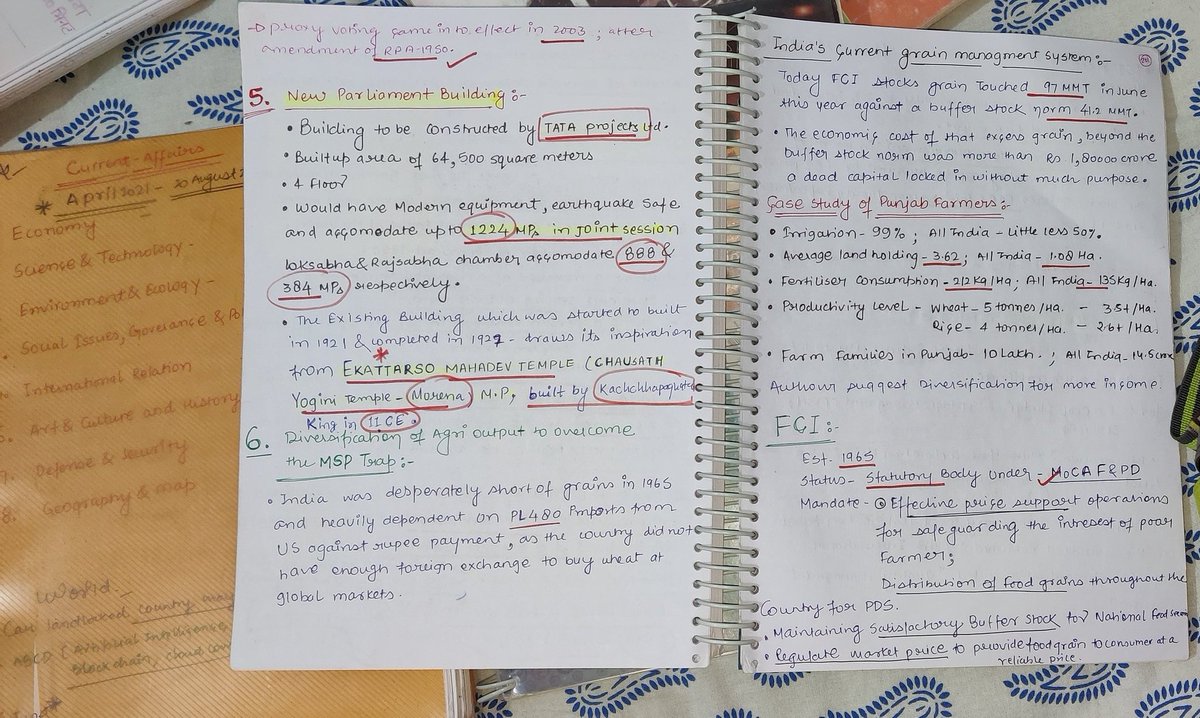 → proxy voting came in to effect in 2003 ; after
amendment of RPA-1950.
5. New Parliament Building :-
• Building to be constructed by TATA projects Ltd.
• Builtup area of 64,500 square meters
• 4 floor
• Would have Modern equipment, earthquake Safe
and accomodate upto 1224 MPs in Joint session
loksabha & Rajsabha chamber accomodate 888 &
384 MPs respectively.
• The Existing Building which was started to built
in 1921 & completed in 1927 - draws its inspiration
from EKATTARSO MAHADEV TEMPLE (CHAUSATH
Yogini Temple - Morena M.P, built by Kachchhapaghata
King in 11 CE.
6. Diversification of Agri output to overcome
the MSP Trap :-
• India was desperately short of grains in 1965
and heavily dependent on PL480 Imports from
US against rupee payment, as the country did not
have enough foreign exchange to buy wheat at
global markets.
India's Current grain managment system :-
Today FCI stocks grain Touched 97 MMT in June
this year against a buffer stock norm 41.2 MMT.
• The economic cost of that excess grain, beyond the
buffer stock norm was more than Rs 1,80000 crore
a dead capital locked in without much purpose.
Case study of Punjab Farmers :-
• Irrigation - 99% ; All India - Little less 50%.
• Average land holding - 3.62 ; All India - 1.08 Ha.
• Fertiliser Consumption - 212 kg/Ha ; All India - 135kg/Ha.
• Productivity Level - wheat - 5 tonnes/Ha. - 3.5t/Ha.
Rice - 4 tonnel/Ha. - 2.6t/Ha.
• Farm families in Punjab - 10 Lakh. ; All India - 14.5 cror
Authour suggest Diversification for more income.
FCI :-
Est. 1965
Status - Statutory Body under - MoCAFRPD
Mandate - Effective price support operations
for safeguarding the intrest of poor
Farmer ;
Distribution of food grains throughout the
Country for PDS.
• Maintaining Satisfactory Buffer Stock for National food
• Regulate market price to provide foodgrain to consumer at a
reliable price.
Current - Affairs
* April 2021 - 20 August 2
Economy
Science & Technology -
Environment & Ecology -
Social Issues, Goverance & Pol
International Relation
Art & Culture and History
7. Defence & security
8. Geography & map
World :-
Can landlocked country may
ABCD [ Artificial Intelligence
Blockchain, cloud com